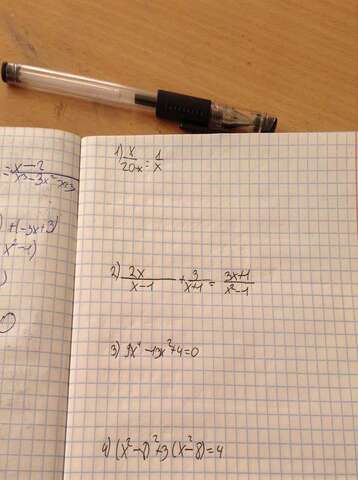 = x-2
x³-3x²-x+3
+(-3x+3)
x²-1)
1) x/20-x = 1/x
2) 2x/x-1 + 3/x+1 = 3x+1/x²-1
3) 9x⁴-13x²+4=0
4) (x²-8)²+3(x²-8)=4